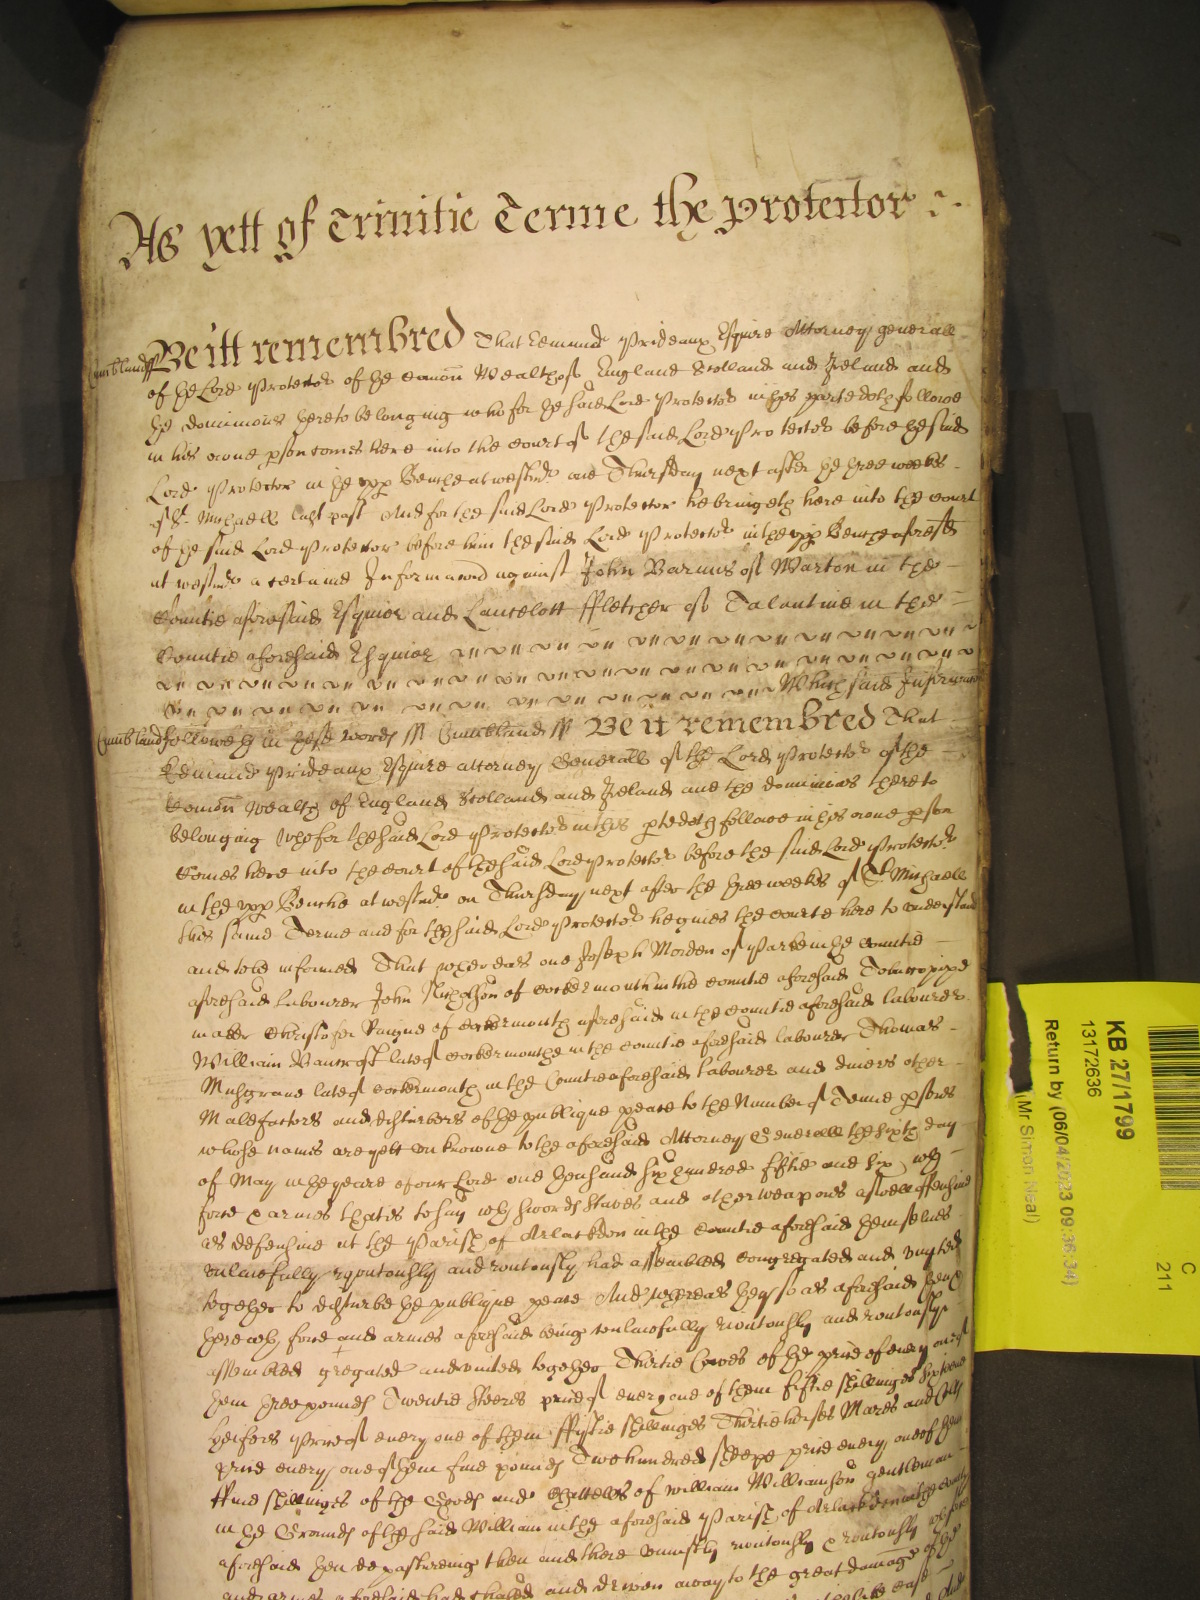 As yett of Trinitie Terme the protector
Cumbland ss Be itt remembred That Edmund Prideaux Esquire Attorney generall
of the Lord Protector of the Comon Wealth of England Scotland and Ireland and
the dominions thereto belonging who for the said Lord Protector in this parte doth followe
in his owne pson comes here into the Court of the said Lord Protector before the said
Lord Protector in the upp Benche at westmr one Thursday next after the three weekes
of St Michaell last past And for the said Lord Protector he bringeth here into the Court
of the said Lord Protector before him the said Lord Protector in the upp Benche aforesd
at westmr a certaine Informacon against John Barwis of Warton in the
Countie aforesaid Esquior and Lancelott ffletcher of Talantine in the
Countie aforesaid Esquior
Which said Informacon
Cumbland followeth in these words ss Cumbland ss Be it remembred That
Edmund Prideaux Esquire attorney Generall of the Lord Protector of the
Comon Wealth of England Scotland and Ireland and the dominions thereto
belonging who for the said Lord Protector in this pte doth followe in his owne pson
Comes here into the Court of the said Lord Protector before the said Lord Protector
in the upp Benche at westmr on Thursday next after the three weekes of St Michaell
this same Terme and for the said Lord Protector he gives the Courte here to understand
and to be informed That whereas one Joseph Morden of in the Countie
aforesaid Labourer John Nicholson of Cockermouth in the Countie aforesaid Tobaccopipe
maker Christofer of Cockermouth aforesaid in the Countie aforesaid labourer
William late of Cockermouthe in the Countie aforesaid labourer Thomas
Musgrave late of Cockermouth in the Countie aforesaid labourer and divers other
Malefactors and disturbers of the publique peace to the Number of Tenne psons
whose names are yett unknowne to the aforesaid Attorney Generall the sixth day
of May in the yeare of our Lord one thousand six hundred fiftie and six wth
force & armes that is to say wth swords staves and other weapons aswell offensive
as defensive at the Parish of Arlackdon in the Countie aforesaid themselves
unlawfully ryoutously and routously had assembled congregated and unyted
together to disturbe the publique peace And whereas they so as aforesaid
there wth force and armes aforesaid being unlawfully rioutously and routously
assembled gregated and united together Thirtie Cowes of the price of every one of
them three pounds Twentie steers price of every one of them fiftie shillinges sixteene
heifers price of every one of them ffyftie shillinges Thirtie horses Mares and Colts
price every one of them five pounds Two hundred sheepe price every one of them
ffive shillinges of the Goods and Chattells of William Williamson gentleman
in the Grounds of the said William in the aforesaid Parish of Arlackden in the County
aforesaid then depastureing then and there unjustly rioutously & routously wth force
and armes aforesaid had chased and driven away to the great damage of the